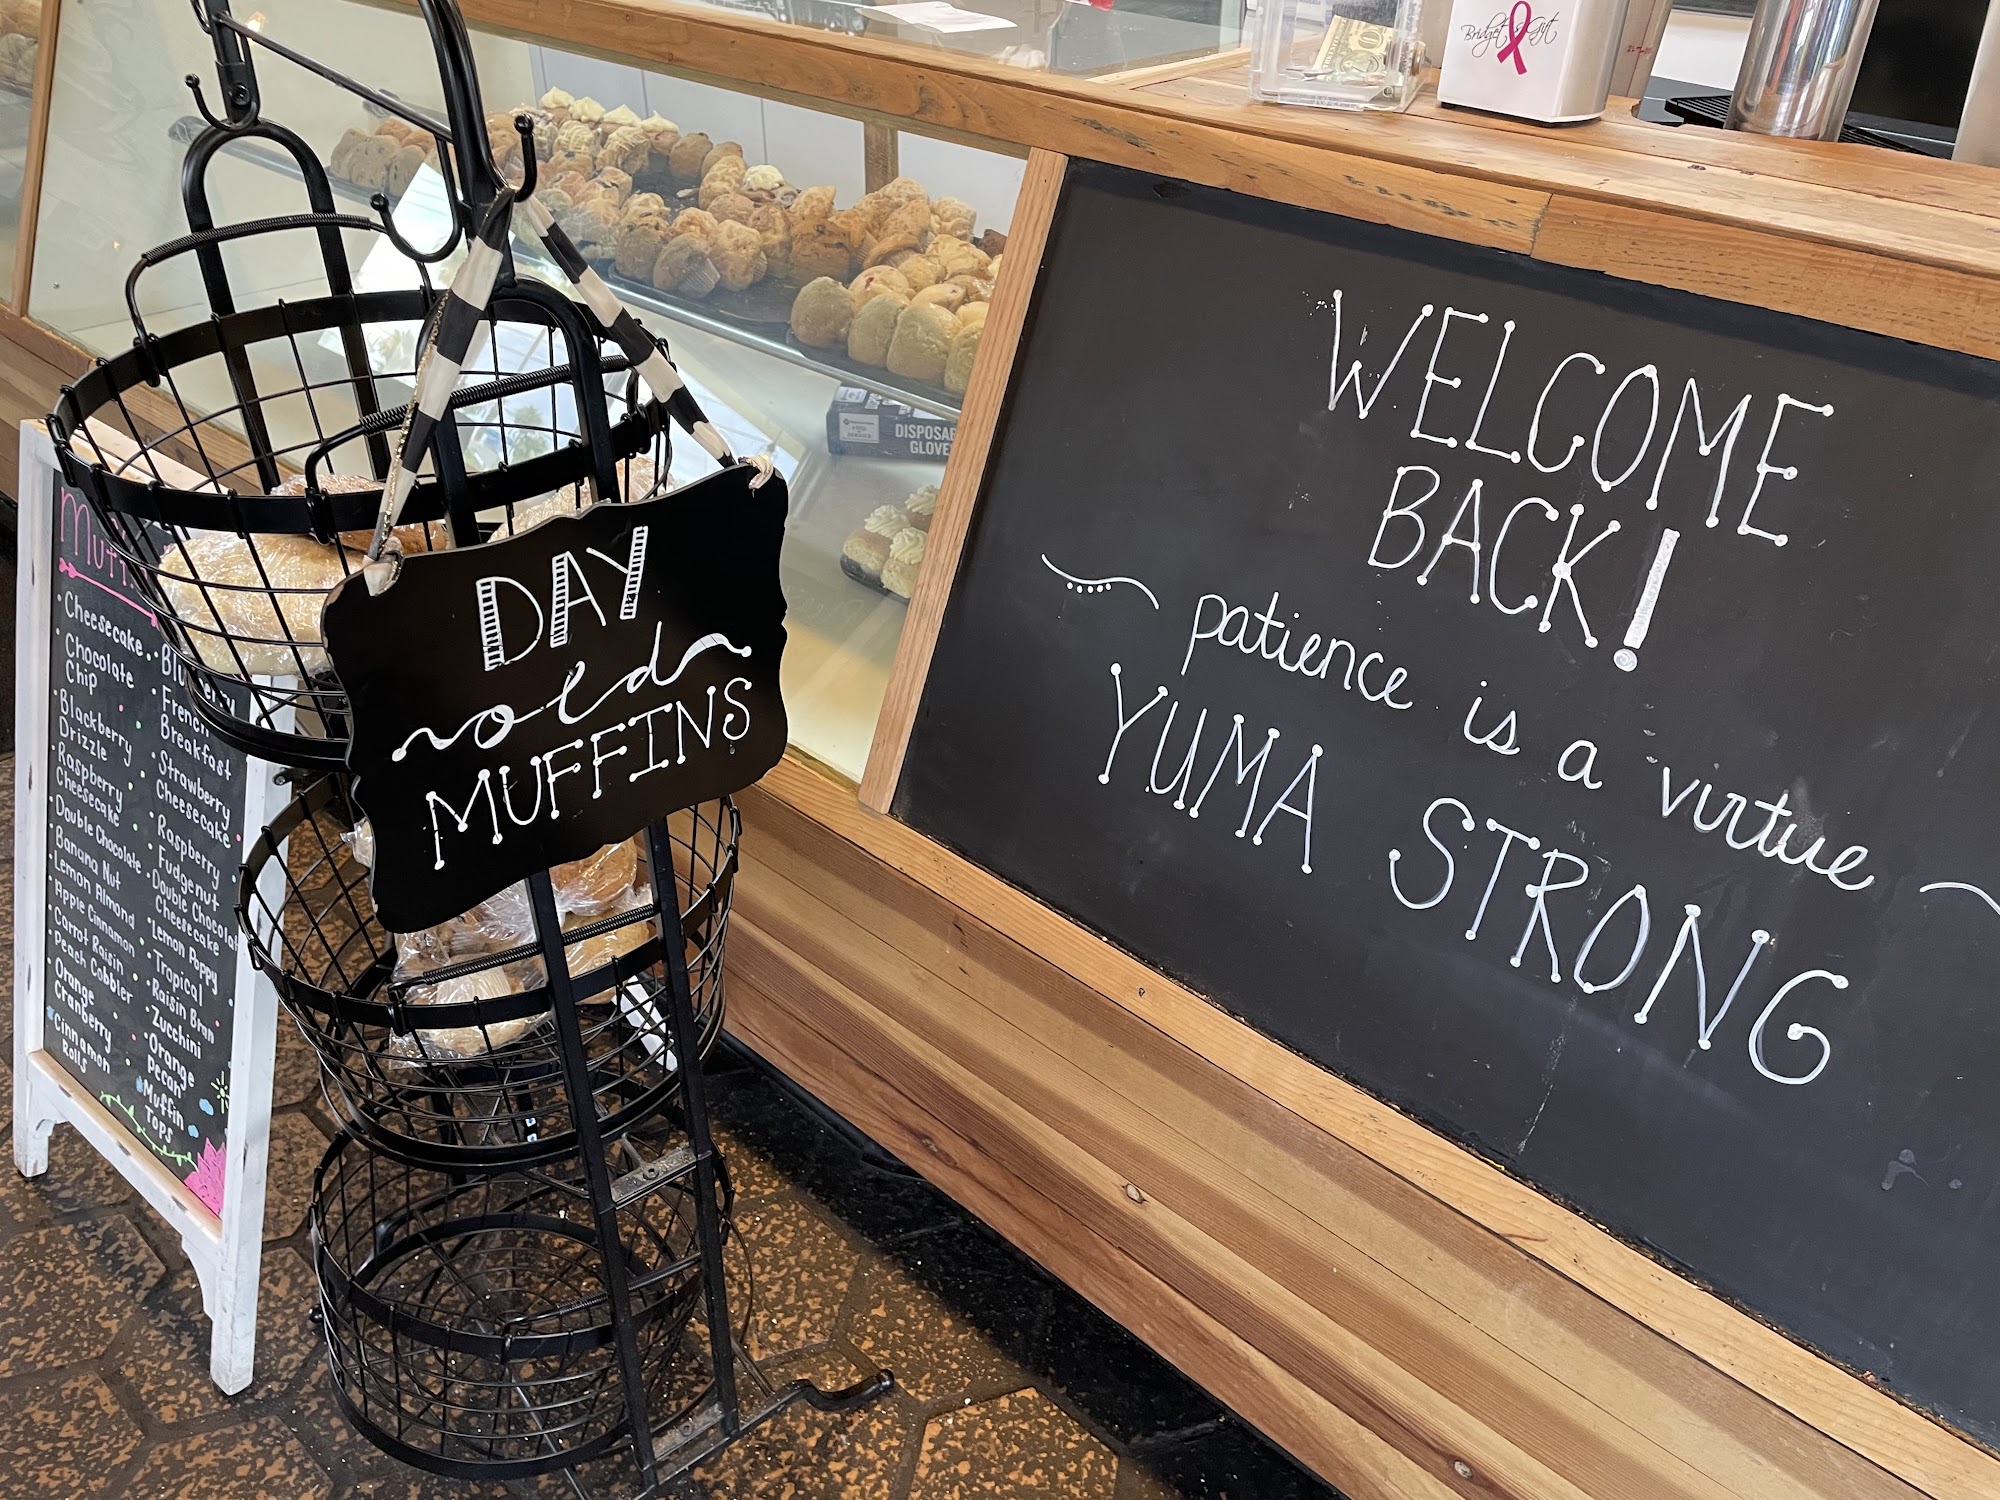 Bridget's Gift
DISPOSA
GLOVE
WELCOME
BACK!
patience is a virtue
YUMA STRONG
DAY
old
MUFFINS
Muff
Cheesecake
Chocolate
Chip
Blackberry
Drizzle
Raspberry
Cheesecake
Double Chocolate
Banana Nut
Lemon Almond
Apple Cinnamon
Carrot Raisin
Peach Cobbler
Orange
Cranberry
Cinnamon
Rolls
Blueberry
French
Breakfast
Strawberry
Cheesecake
Raspberry
Fudgenut
Double Chocolat
Cheesecake
Lemon Poppy
Tropical
Raisin Bran
Zucchini
Orange
Pecan
Muffin
Tops